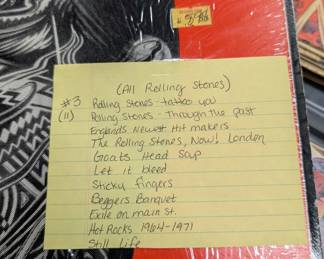 (All Rolling Stones)
#3 Rolling Stones - tattoo you
(11) Rolling Stones - Through The past
Englands Newest Hit makers
The Rolling Stones, Now! London
Goats Head Soup
Let it bleed
Sticky fingers
Beggers Banquet
Exile on main St.
Hot Rocks 1964-1971
Still Life